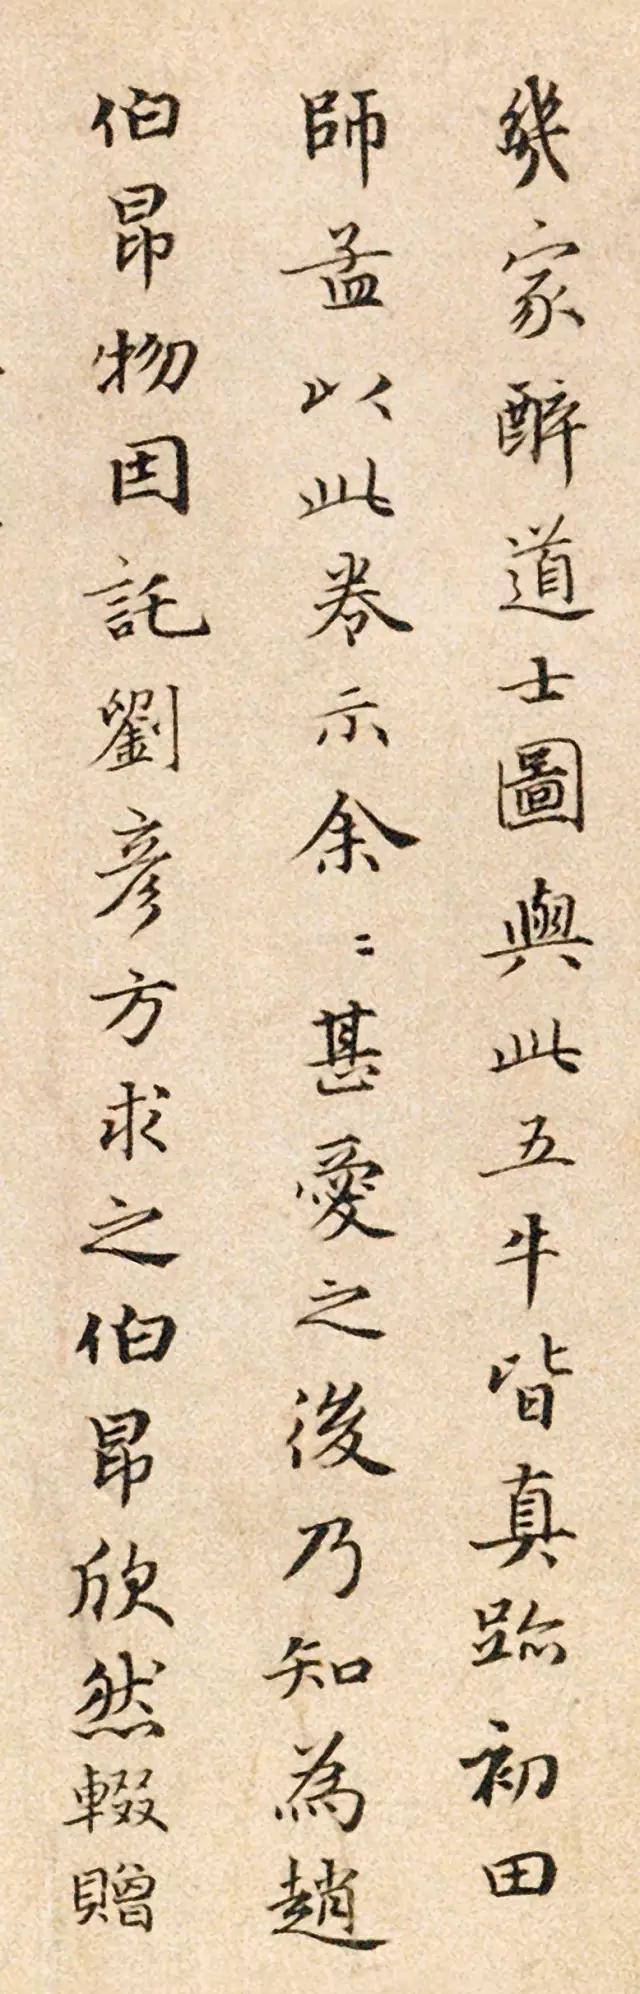 幾家醉道士圖與此五牛皆真跡初田
師孟以此卷示余〻甚愛之後乃知為趙
伯昂物因託劉彥方求之伯昂欣然輟贈